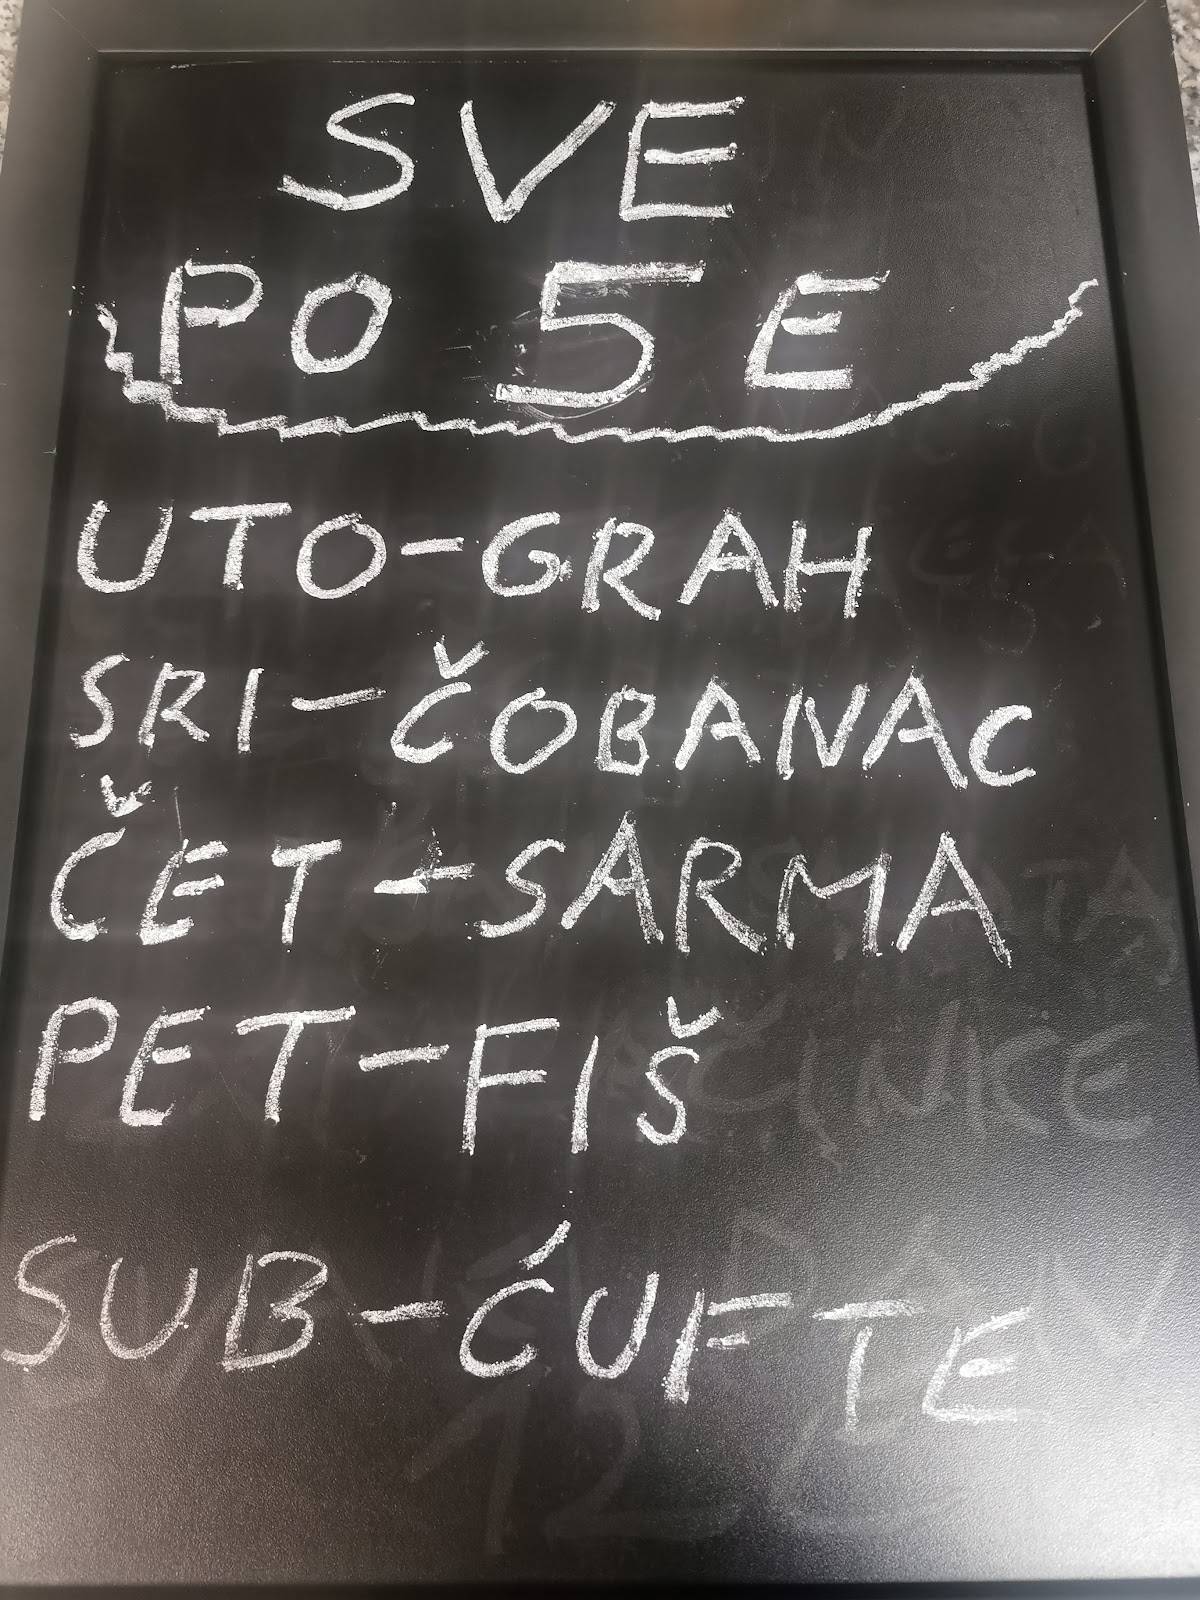 SVE
PO 5 E
UTO-GRAH
SRI-ČOBANAC
ČET-SARMA
PET-FIŠ
SUB-ĆUFTE